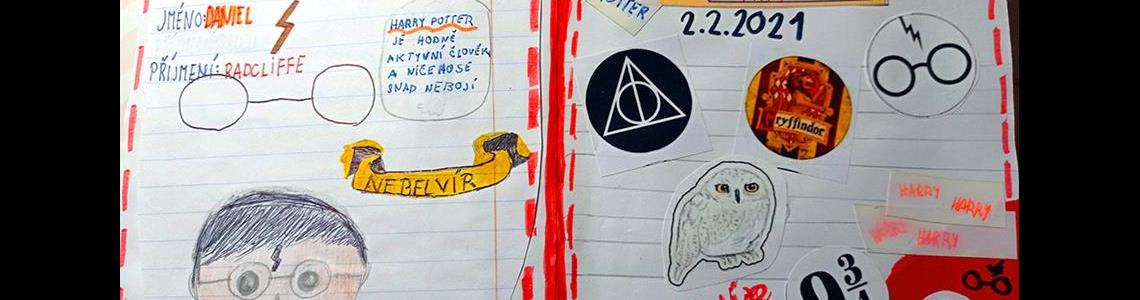 JMÉNO: DANIEL
PŘÍJMENÍ: RADCLIFFE
HARRY POTTER
JE HODNĚ
AKTYVNÍ ČLOVĚK
A NIČEHO SE
SNAD NEBOJÍ
NEBELVÍR
POTTER
2.2.2021
Gryffindor
HARRY
HARRY
HARRY
9 3/4